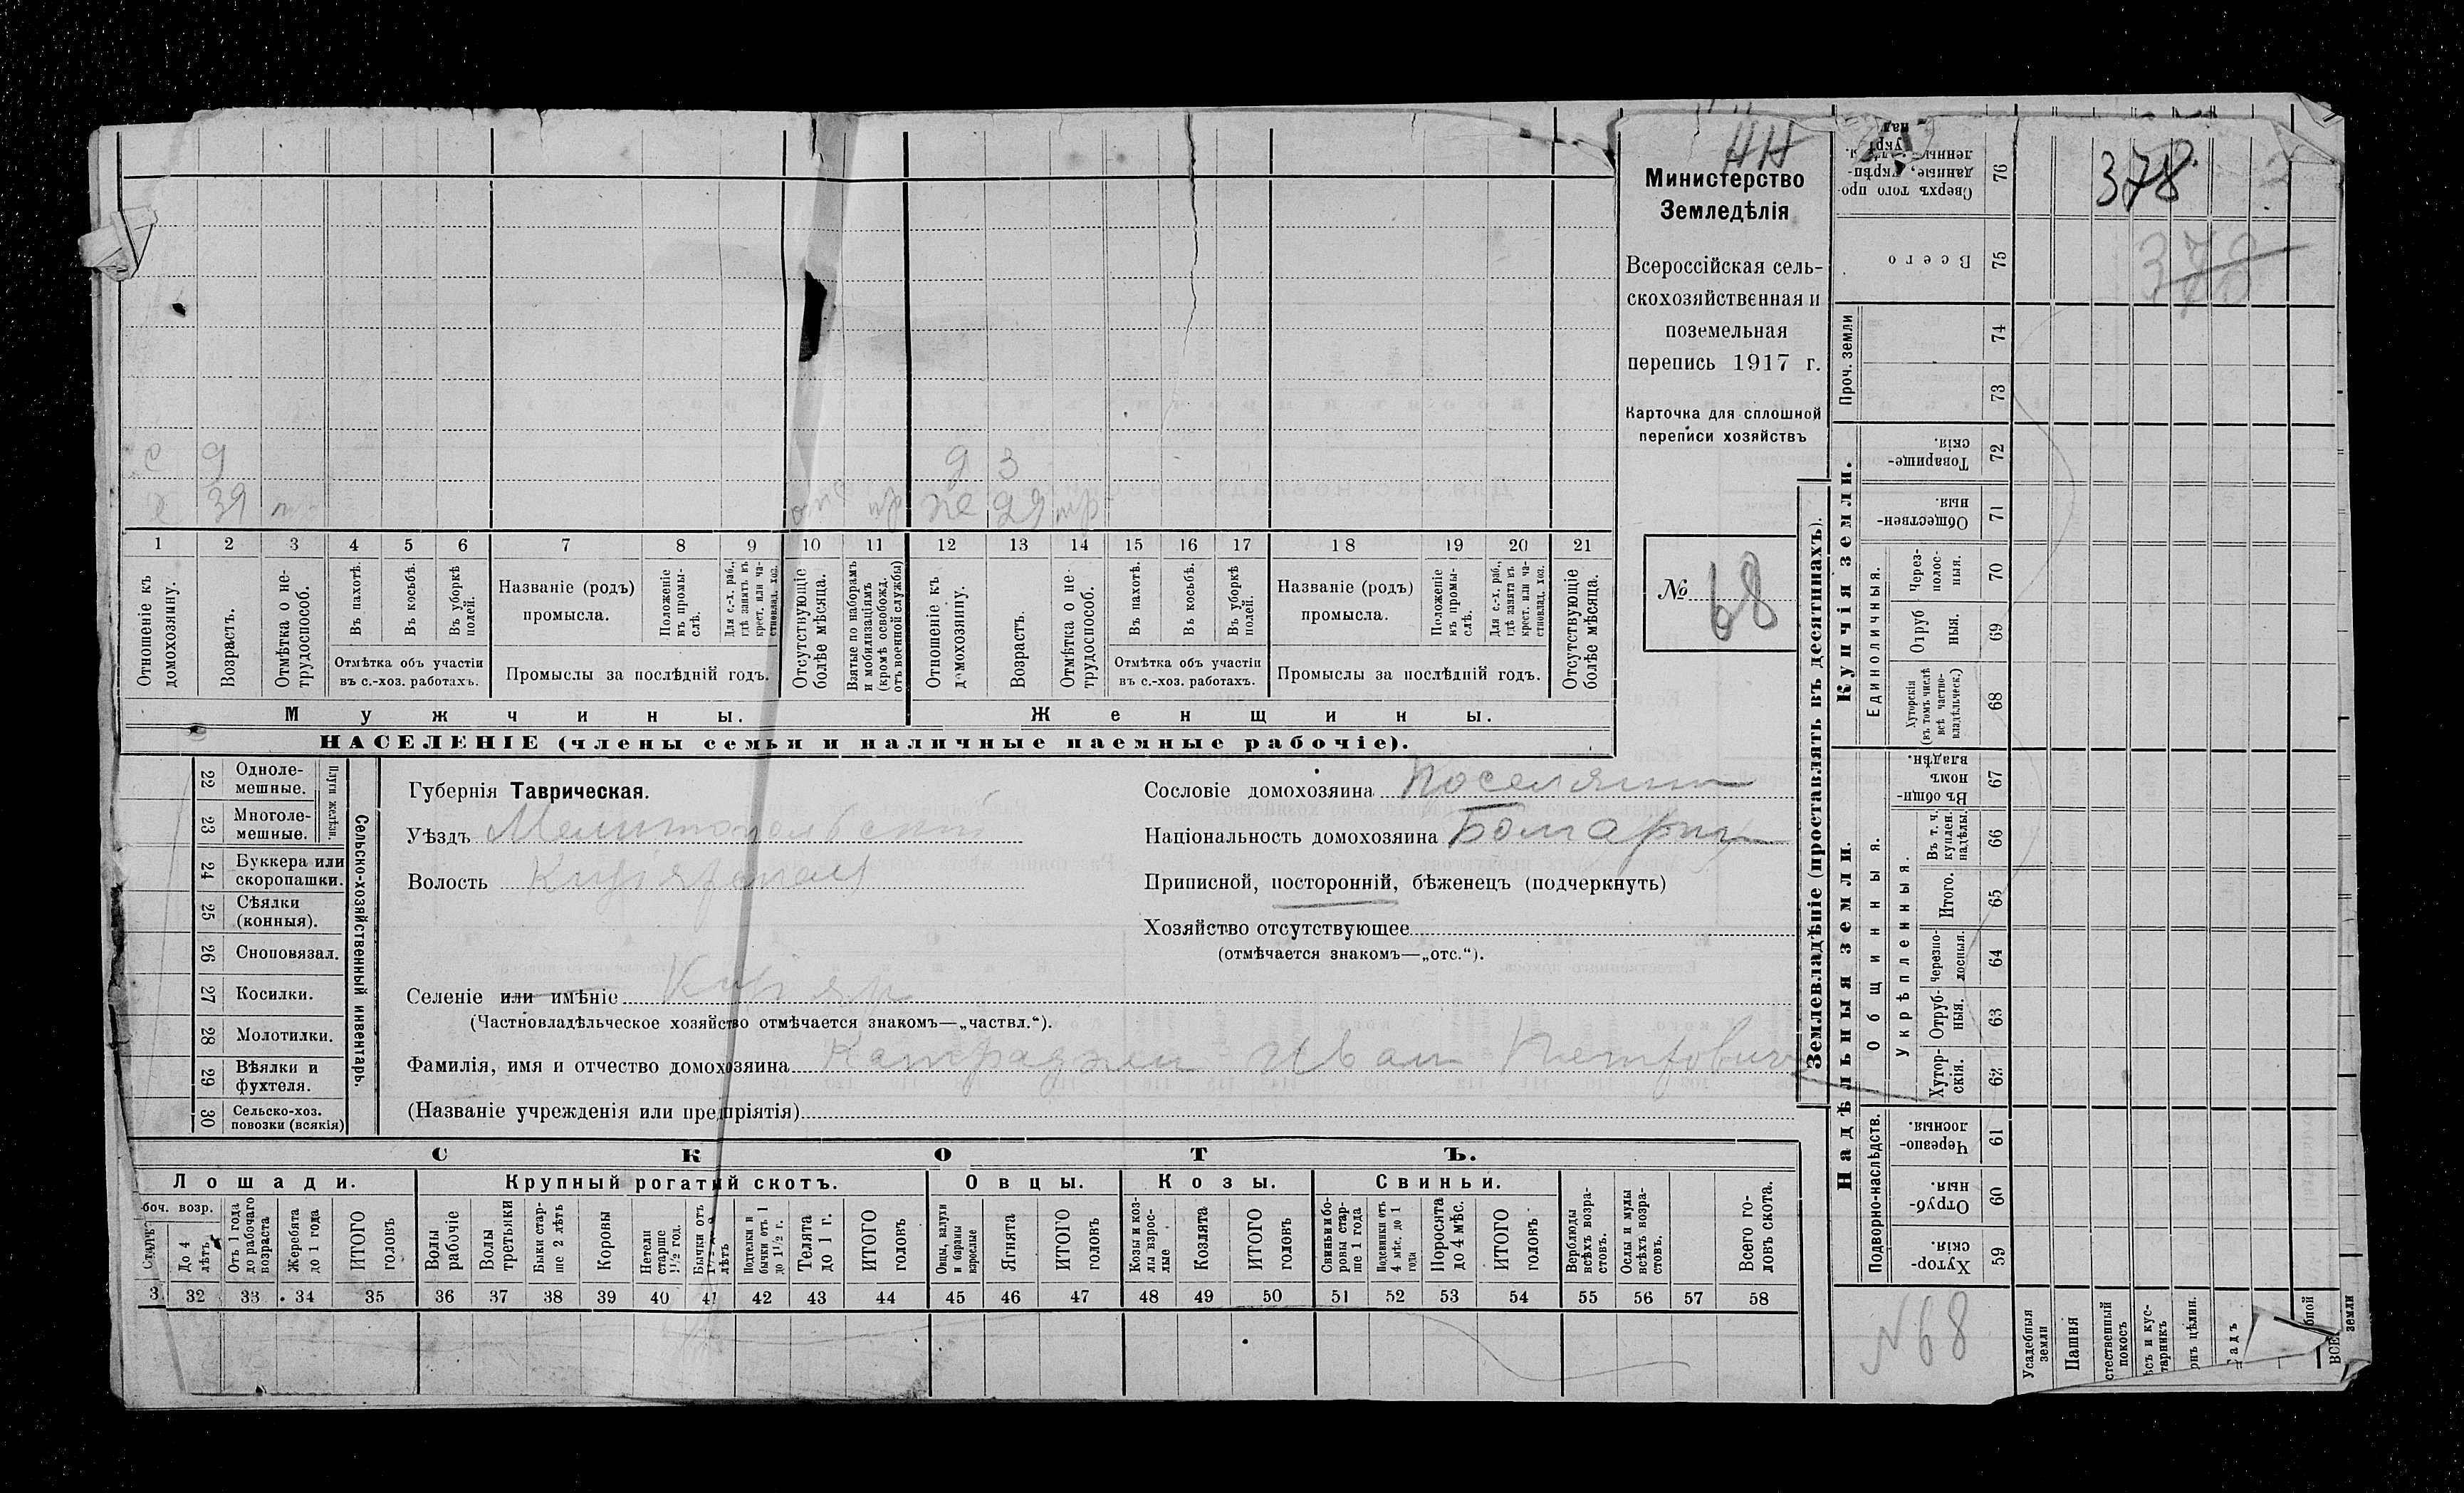 378
378
НН
Министерство
Земледѣлія
Всероссійская сель-
скохозяйственная и
поземельная
перепись 1917 г.
Карточка для сплошной
переписи хозяйствъ
№ 68
с 9
д 3
х 39
отс
же 29 тр
1 2 3 4 5 6 7 8 9 10 11 12 13 14 15 16 17 18 19 20 21
Отношеніе къ домохозяину.
Возрастъ.
Отмѣтка о не-трудоспособ.
Въ пахотѣ.
Въ косьбѣ.
Въ уборкѣ полей.
Отмѣтка объ участіи въ с.-хоз. работахъ.
Названіе (родъ) промысла.
Положеніе въ промы-слѣ.
Для с.-х. раб., гдѣ занятъ въ крест. или ча-стновлад. хоз.
Промыслы за послѣдній годъ.
Отсутствующіе болѣе мѣсяца.
Взятые по наборамъ и мобилизаціямъ (кромѣ освобожд. отъ военной службы)
Отношеніе къ домохозяину.
Возрастъ.
Отмѣтка о не-трудоспособ.
Въ пахотѣ.
Въ косьбѣ.
Въ уборкѣ полей.
Отмѣтка объ участіи въ с.-хоз. работахъ.
Названіе (родъ) промысла.
Положеніе въ промы-слѣ.
Для с.-х. раб., гдѣ занята въ крест. или ча-стновлад. хоз.
Промыслы за послѣдній годъ.
Отсутствующіе болѣе мѣсяца.
Мужчины.
Женщины.
НАСЕЛЕНІЕ (члены семьи и наличные наемные рабочіе).
22 Одноле-мешные.
23 Многоле-мешные.
Плуги желѣзн.
24 Буккера или скоропашки.
25 Сѣялки (конныя).
26 Сноповязал.
27 Косилки.
28 Молотилки.
29 Вѣялки и фухтеля.
30 Сельско-хоз. повозки (всякія)
Сельско-хозяйственный инвентарь.
Губернія Таврическая.
Уѣздъ Мелитопольскій
Волость
Селеніе или имѣніе
(Частновладѣльческое хозяйство отмѣчается знакомъ—„частвл.“).
Фамилія, имя и отчество домохозяина Иван Петрович
(Названіе учрежденія или предпріятія)
Сословіе домохозяина Поселянин
Національность домохозяина Болгарин
Приписной, посторонній, бѣженецъ (подчеркнуть)
Хозяйство отсутствующее
(отмѣчается знакомъ—„отс.“).
СКОТЪ.
Лошади.
Крупный рогатый скотъ.
Овцы.
Козы.
Свиньи.
боч. возр.
До 4 лѣтъ
Отъ 1 года до рабочаго возраста
Жеребята до 1 года
ИТОГО головъ
Волы рабочіе
Волы третьяки
Быки стар-ше 2 лѣтъ
Коровы
Нетели старше 1½ год.
Бычки отъ 1½ до 2 лѣтъ
Подтелки и бычки отъ 1 до 1½ г.
Телята до 1 г.
ИТОГО головъ
Овцы, валухи и бараны взрослые
Ягнята
ИТОГО головъ
Козы и коз-лы взрос-лые
Козлята
ИТОГО головъ
Свиньи и бо-ровы стар-ше 1 года
Подсвинки отъ 4 мѣс. до 1 года
Поросята до 4 мѣс.
ИТОГО головъ
Верблюды всѣхъ возра-стовъ.
Ослы и мулы всѣхъ возра-стовъ.
Всего го-ловъ скота.
3 32 33 34 35 36 37 38 39 40 41 42 43 44 45 46 47 48 49 50 51 52 53 54 55 56 57 58
Землевладѣніе (проставлять въ десятинахъ).
Купчія земли.
Надѣльныя земли.
Сверхъ того про-данные, укрѣп-ленные 76
Всего 75
Проч. земли
74
73
Товарище-скія. 72
Обществен-ныя. 71
Единоличныя.
Через-полос-ныя. 70
Отруб ныя. 69
Хуторскія (въ томъ числѣ всѣ частно-владѣльческ.) 68
Въ общи-номъ владѣн. 67
Общинныя.
Укрѣпленныя.
Въ т. ч. куплен. надѣлы. 66
Итого. 65
черезпо-лосныя. 64
Отруб-ныя. 63
Хутор-скія. 62
Подворно-наслѣдств.
Черезпо-лосныя. 61
Отруб-ныя. 60
Хутор-скія. 59
N 68
Усадебныя земли
Пашня
стественный покосъ
ѣсъ и кус-тарникъ
онъ цѣлин.
адъ
бной
ВСЕ
земли